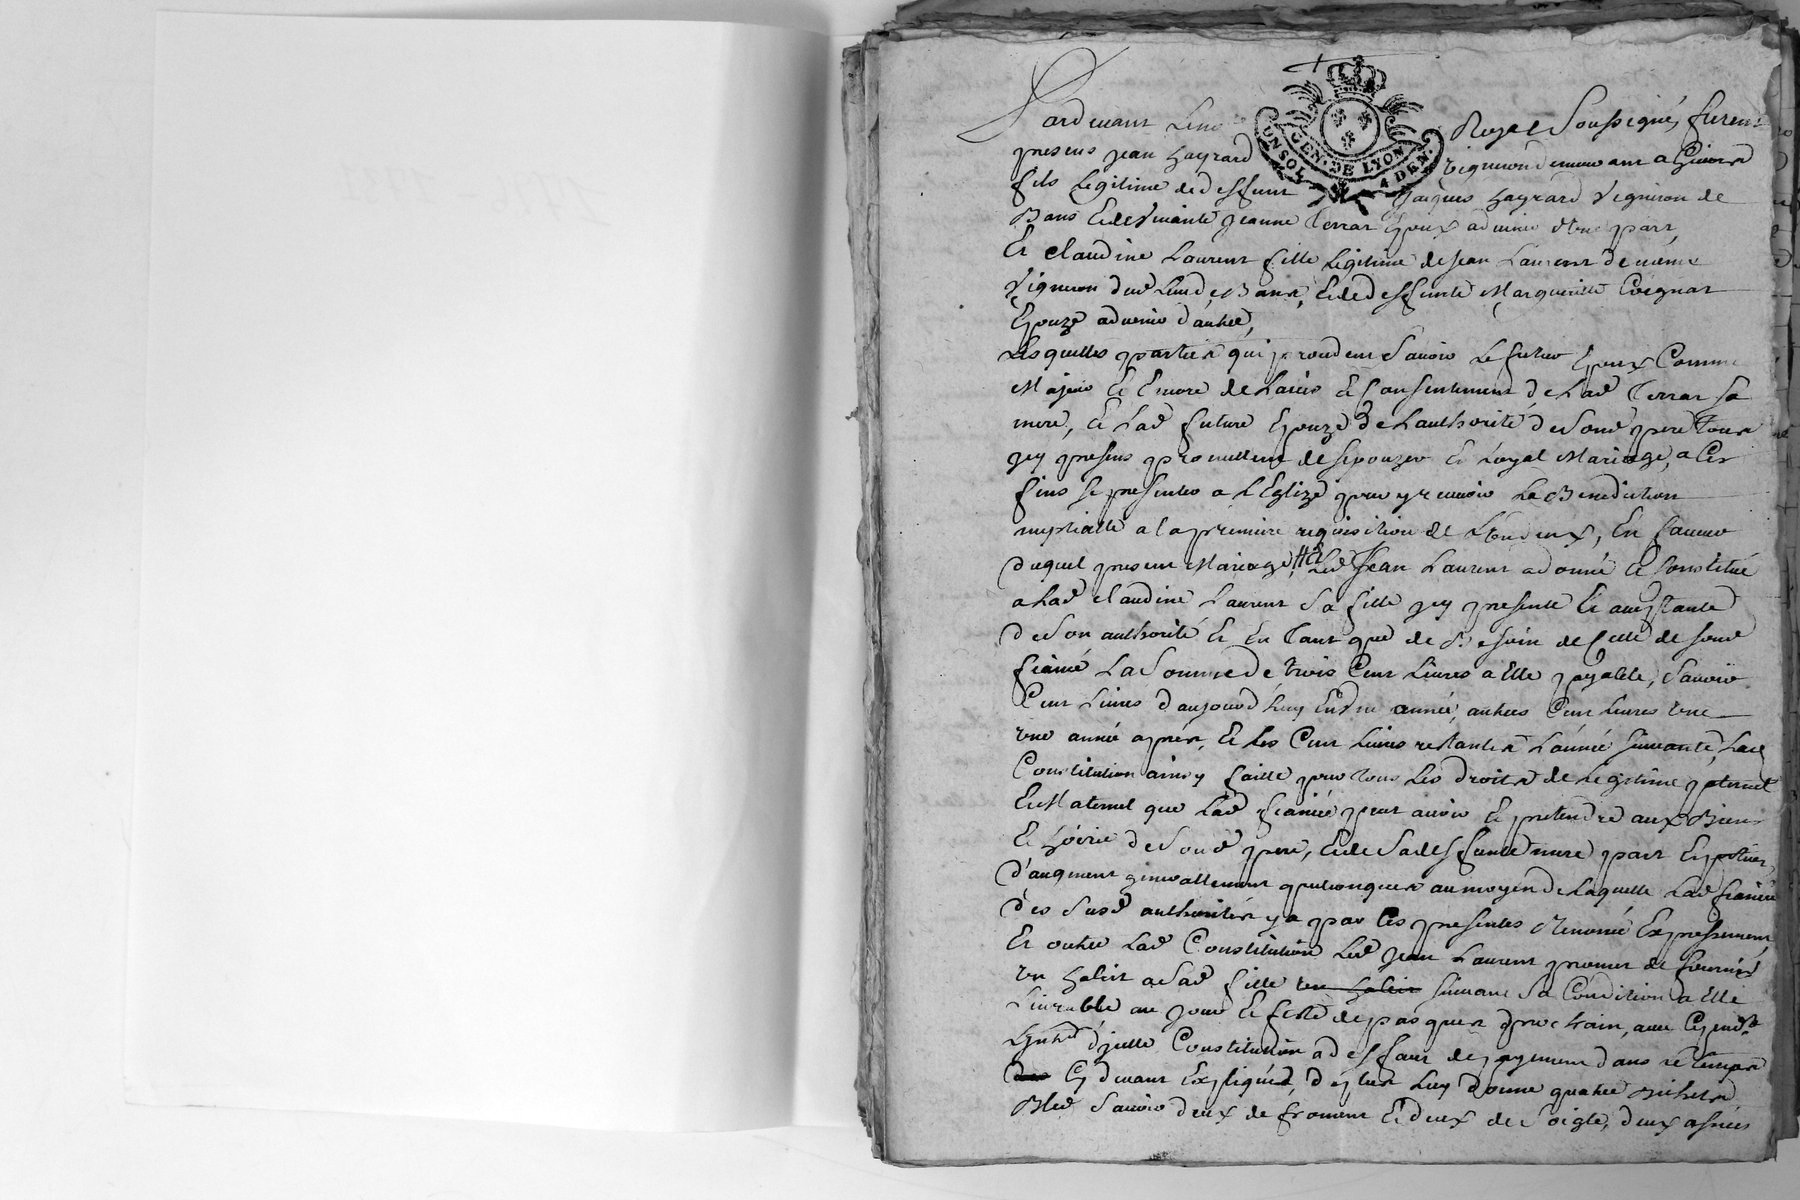 Pardevant Le no Royal Soussigné, furent
GEN. DE LYON
UN SOL 4 DEN.
presens jean hayrard vigneron demeurant a Givors
fils Legitime de deffunt jacques hayrard vigneron de
Bans Et de vivante jeanne Terrat Epoux advenir d'une part,
Et claudine Laurent fille Legitime de jean Laurent de meme
vigneron dud Lieu de Bans, Et de deffunte Margueritte Coignat
Epouze advenir d'autre,
Lesquelles parties qui procedent Savoir Le futur Epoux Comme
Majeur Et Encore de Lavis Et Consentement de Lad Terrat sa
mere, Et Lad future Epouze de Lauthorité de Sond pere Tous
jcy presens promettent de sepouzer En Loyal Mariage, a Ces
fins se presenter a L'Eglize pour y recevoir La Benediction
nuptialle a la premiere requisition de L'un deux, En faveur
duquel present Mariage, Led Jean Laurent a donné Et Constitué
a Lad claudine Laurent Sa fille jcy presente Et acceptante
de Son authorité Et En Tant que de Besoin de Celle de sond
fiancé La Somme de trois Cent Livres a Elle payable, Savoir
Cent Livres d'aujourd'huy En une année, autres Cent Livres une
une année apres, Et Les Cent Livres restantes L'année suivante, Lad
Constitution ainsy faitte pour tous Les droits de Legitime paternel
Et Maternel que Lad fiancée peut avoir Et pretendre aux Biens
Et hoirie de Sond pere, Et de Sa deffunte mere part Et portion
d'augment generallement quelconques au moyen de Laquelle Lad fiancée
des Susd authorités y a par Ces presentes renoncé Expressement,
Et outre Lad Constitution Led jean Laurent promet de fournir
un habit a Sad fille un habit suivant Sa Condition a Elle
Livrable au jour Et feste de pasques prochain, avec
d'jcelle Constitution a deffaut de payement dans le temps
Cy devant Expliqué, de Luy donner quatre Bichets
Bled Savoir deux de froment Et deux de Soigle, deux asnées